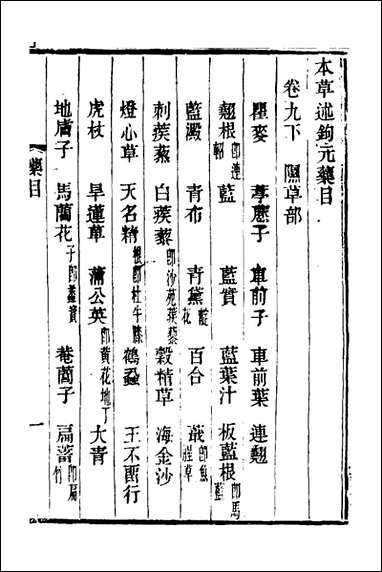 本草述鉤元藥目
卷九下 隰草部
瞿麥 葶藶子 車前子 車前葉 連翹
翹根 即連軺 藍 藍實 藍葉汁 板藍根 即馬藍
藍澱 青布 青黛 靛花 百合 蕺 即魚腥草
刺蒺藜 白蒺藜 即沙苑蒺藜 穀精草 海金沙
燈心草 天名精 根即杜牛膝 鶴蝨 王不留行
虎杖 旱蓮草 蒲公英 即黃花地丁 大青
地膚子 馬藺花 子即蠡實 菴䕡子 萹蓄 即扁竹
藥目
一